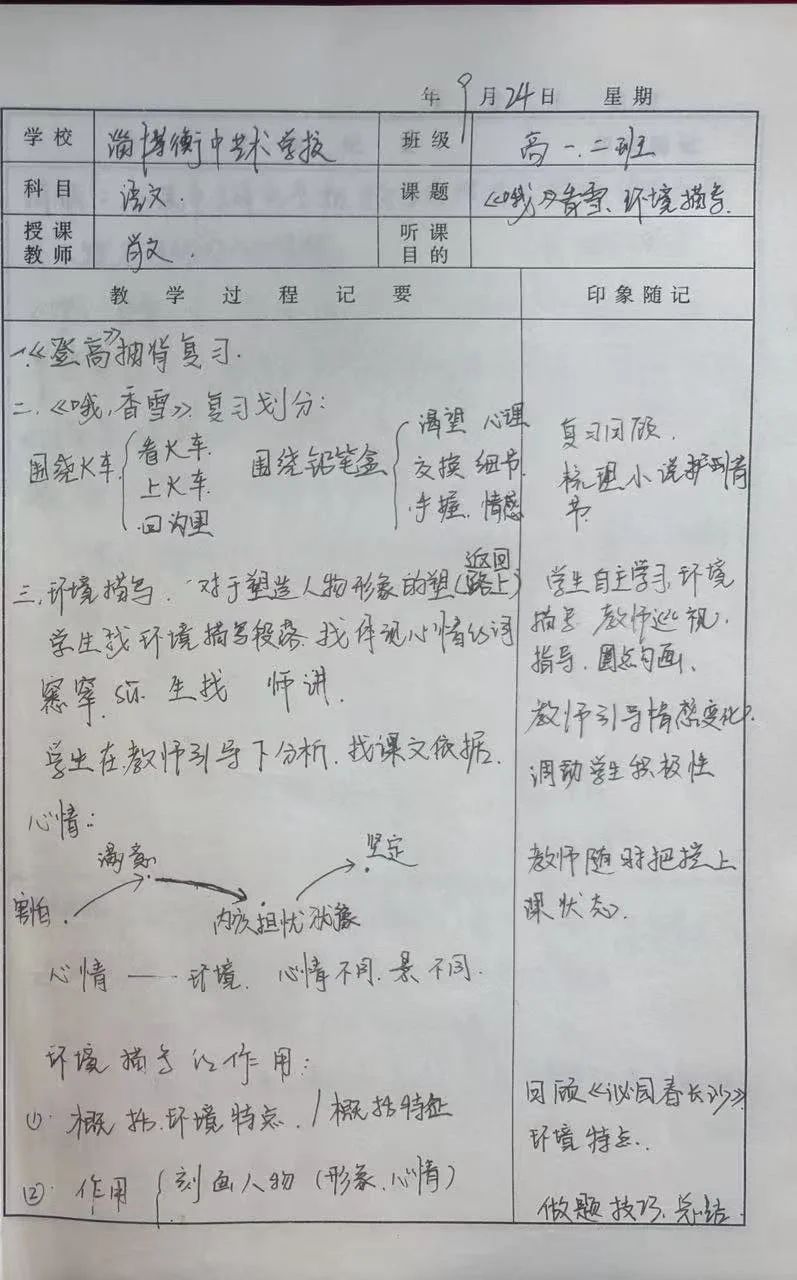 年 9 月 24 日 星期
学校 淄博衡中艺术学校 班级 高一.二班
科目 语文. 课题 《哦,香雪、环境描写.
授课教师 肖文. 听课目的
教学过程记要 印象随记
一.《登高》抽背复习.
二.《哦,香雪》复习划分:
围绕火车 看火车. 上火车. 回沟里
围绕铅笔盒 渴望 心理 交换 细节. 手握. 情感
复习回顾.
梳理小说 情
节.
三.环境描写. 对于塑造人物形象的塑(返回路上)
学生找环境描写段落.找体现心情的词
窸窣. 生找 师讲.
学生在教师引导下分析.找课文依据.
学生自主学习.环境
描写 教师巡视.
指导.圈点勾画、
教师引导情感变化.
调动学生积极性
心情:
害怕. 满意 内疚担忧犹豫 坚定
教师随时把控上
课状态.
心情——环境. 心情不同.景不同.
环境描写的作用:
(1). 概括.环境特点./概括特征
(2). 作用 刻画人物(形象、心情)
回顾《沁园春长沙》
环境特点..
做题技巧.总结.